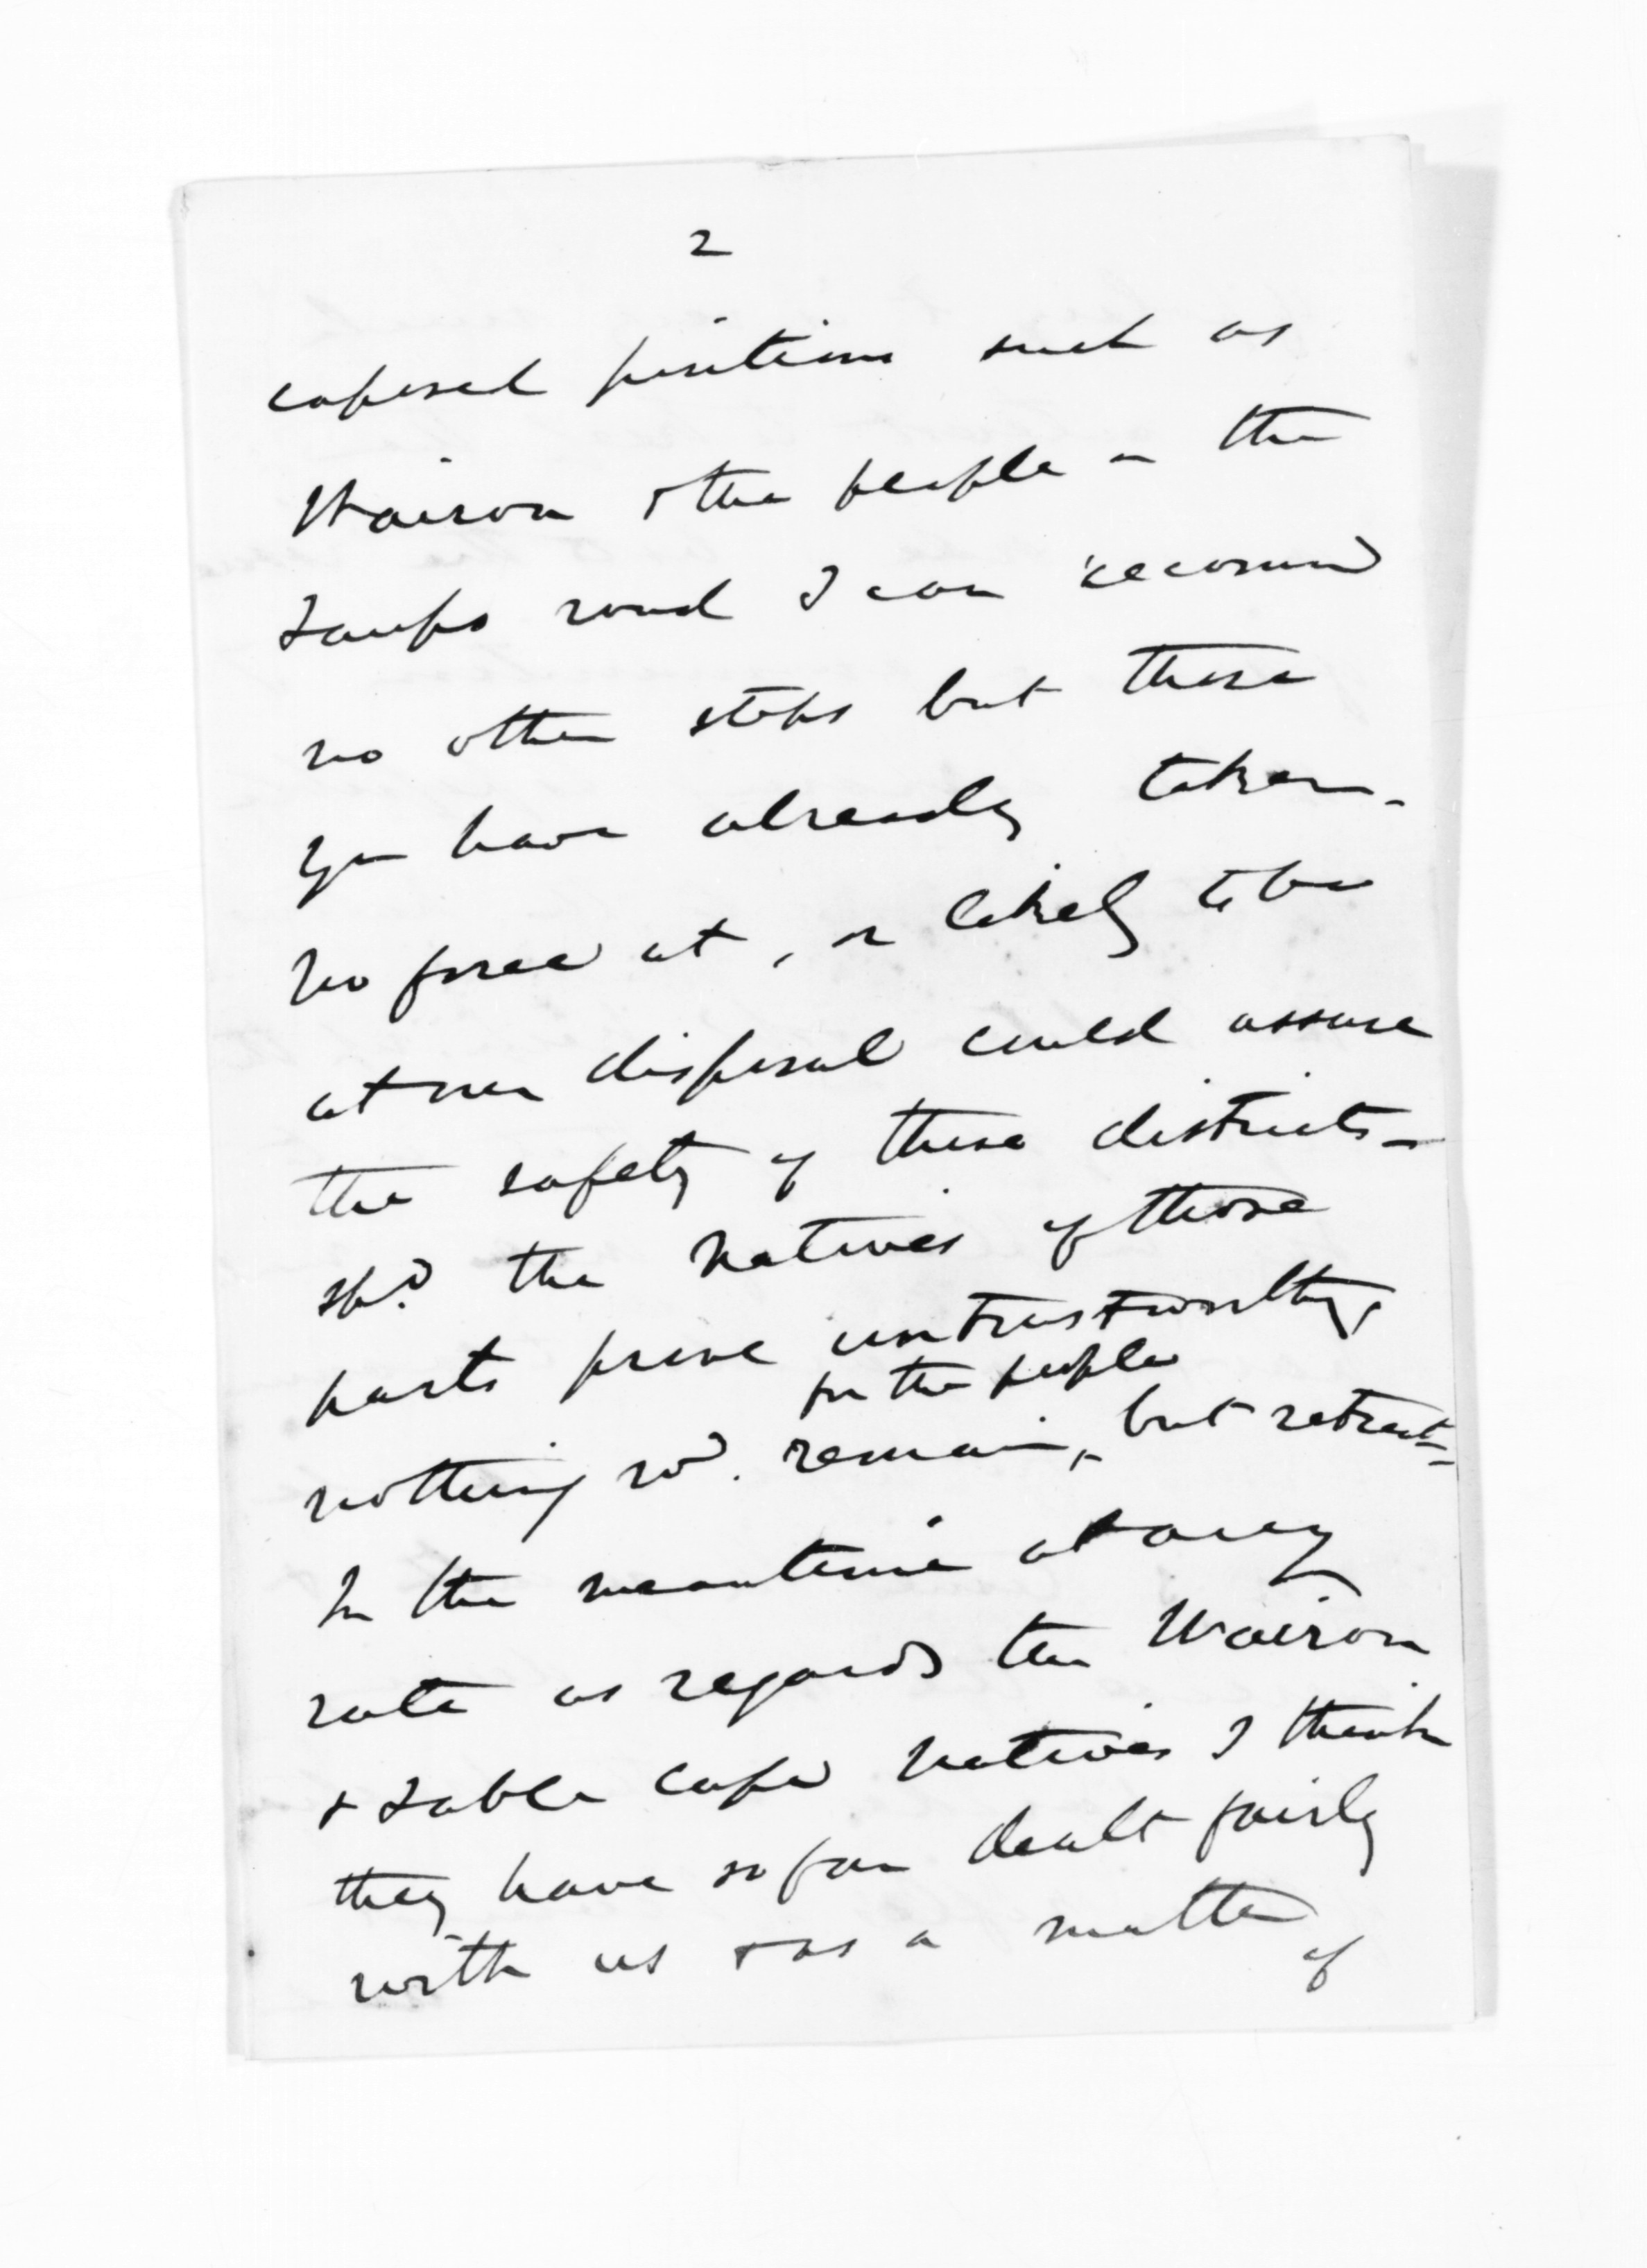 2
exposed positions such as
Wairoa & the people on the
Taupo road I can recommend
no other steps but those
you have already taken -
No force at, or likely to be
at our disposal could assure
the safety of these districts -
shd. the natives of those
parts prove untrustworthy,
for the people
nothing wd. remain, but retreat -
In the meantime at any
rate as regards the Wairoa
& Table Cape natives I think
they have so far dealt fairly
with us & as a matter
of